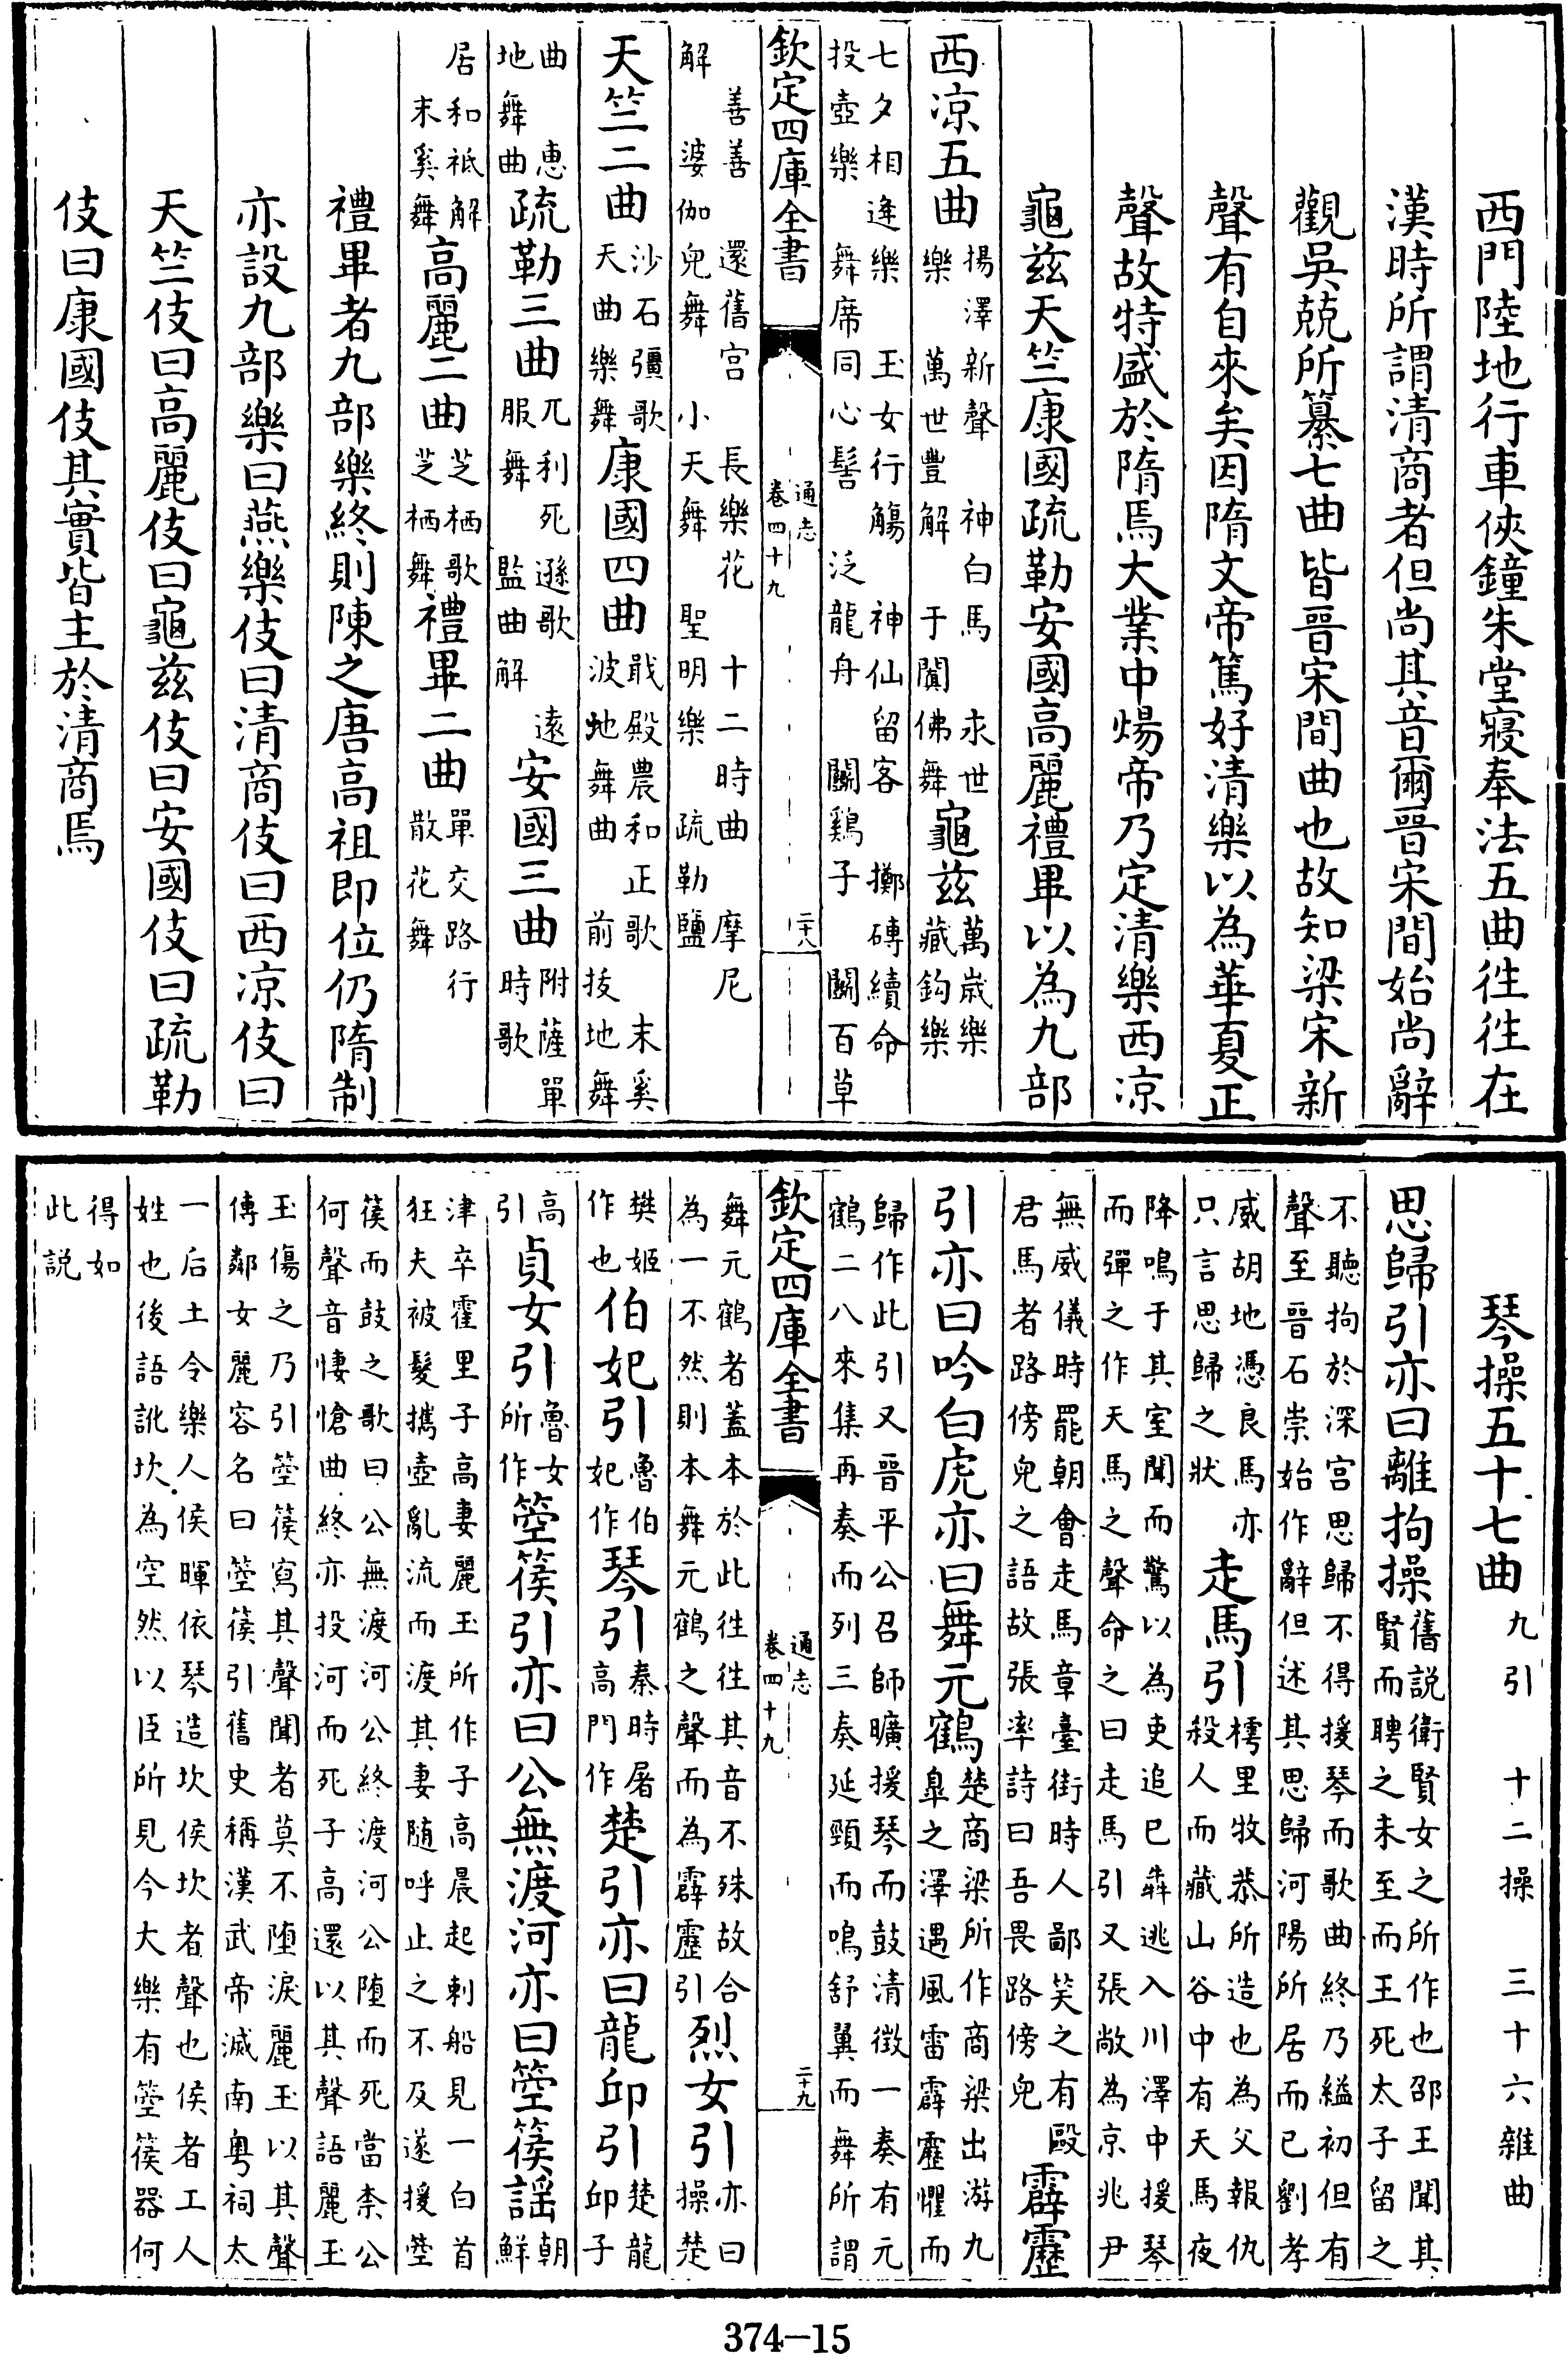 西門陸地行車俠鐘朱堂寢奉法五曲徃徃在
漢時所謂清商者但尚其音爾晉宋間始尚辭
觀吳兢所纂七曲皆晉宋間曲也故知梁宋新
聲有自來矣因隋文帝篤好清樂以為華夏正
聲故特盛於隋焉大業中煬帝乃定清樂西凉
龜兹天竺康國疏勒安國高麗禮畢以為九部
西凉五曲 楊澤新聲 神白馬 永世
樂 萬世豐解 于闐佛舞 龜兹 萬歲樂
藏鈎樂
七夕相逢樂 玉女行觴 神仙留客 擲磚續命
投壺樂 舞席同心髻 泛龍舟 鬭鷄子 鬭百草
欽定四庫全書 通志 卷四十九 二十八
善善 還舊宮 長樂花 十二時曲 摩尼
解 婆伽兒舞 小天舞 聖明樂 疏勒鹽
天竺二曲 沙石彊歌
天曲樂舞 康國四曲 戢殿農和正歌 末奚
波地舞曲 前拔地舞
曲 惠
地舞曲 疏勒三曲 兀利死遜歌 遠
服舞 監曲解 安國三曲 附薩單
時歌
居和祗解
末奚舞 高麗二曲 芝栖歌
芝栖舞 禮畢二曲 單交路行
散花舞
禮畢者九部樂終則陳之唐高祖即位仍隋制
亦設九部樂曰燕樂伎曰清商伎曰西凉伎曰
天竺伎曰高麗伎曰龜兹伎曰安國伎曰疏勒
伎曰康國伎其實皆主於清商焉
琴操五十七曲 九引 十二操 三十六雜曲
思歸引亦曰離拘操 舊説衛賢女之所作也邵王聞其
賢而聘之未至而王死太子留之
不聽拘於深宮思歸不得援琴而歌曲終乃縊初但有
聲至晉石崇始作辭但述其思歸河陽所居而已劉孝
威胡地憑良馬亦
只言思歸之狀 走馬引 樗里牧恭所造也為父報仇
殺人而藏山谷中有天馬夜
降鳴于其室聞而驚以為吏追已犇逃入川澤中援琴
而彈之作天馬之聲命之曰走馬引又張敞為京兆尹
無威儀時罷朝會走馬章臺街時人鄙笑之有毆
君馬者路傍兒之語故張率詩曰吾畏路傍兒 霹靂
引亦曰吟白虎亦曰舞元鶴 楚商梁所作商梁出游九
臯之澤遇風雷霹靂懼而
歸作此引又晉平公召師曠援琴而鼓清徵一奏有元
鶴二八來集再奏而列三奏延頸而鳴舒翼而舞所謂
欽定四庫全書 通志 卷四十九 二十九
舞元鶴者蓋本於此徃徃其音不殊故合
為一不然則本舞元鶴之聲而為霹靂引 烈女引 亦曰
操楚
樊姬
作也 伯妃引 魯伯
妃作 琴引 秦時屠
高門作 楚引亦曰龍邱引 楚龍
邱子
高
引 貞女引 魯女
所作 箜篌引亦曰公無渡河亦曰箜篌謡 朝
鮮
津卒霍里子高妻麗玉所作子高晨起刺船見一白首
狂夫被髮攜壺亂流而渡其妻随呼止之不及遂援箜
篌而鼓之歌曰公無渡河公終渡河公墮而死當柰公
何聲音悽愴曲終亦投河而死子高還以其聲語麗玉
玉傷之乃引箜篌寫其聲聞者莫不墮淚麗玉以其聲
傳鄰女麗容名曰箜篌引舊史稱漢武帝滅南粤祠太
一后土令樂人侯暉依琴造坎侯坎者聲也侯者工人
姓也後語訛坎為空然以臣所見今大樂有箜篌器何
得如
此説
374-15